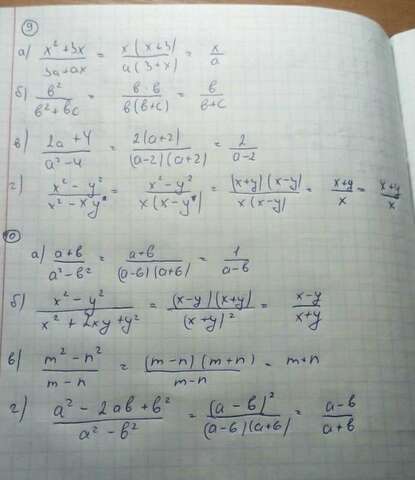 9
а) x² + 3x / 3a + ax = x(x+3) / a(3+x) = x / a
б) b² / b² + bc = b·b / b(b+c) = b / b+c
в) 2a + 4 / a² - 4 = 2(a+2) / (a-2)(a+2) = 2 / a-2
г) x² - y² / x² - xy = x² - y² / x(x-y) = (x+y)(x-y) / x(x-y) = x+y / x = x+y / x
10
а) a+b / a² - b² = a+b / (a-b)(a+b) = 1 / a-b
б) x² - y² / x² + 2xy + y² = (x-y)(x+y) / (x+y)² = x-y / x+y
в) m² - n² / m - n = (m-n)(m+n) / m-n = m+n
г) a² - 2ab + b² / a² - b² = (a-b)² / (a-b)(a+b) = a-b / a+b